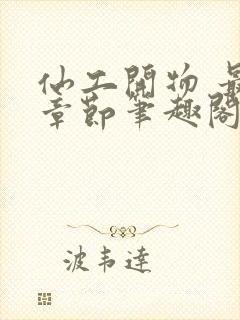 仙工開物 最
章節筆趣閣
波韦達